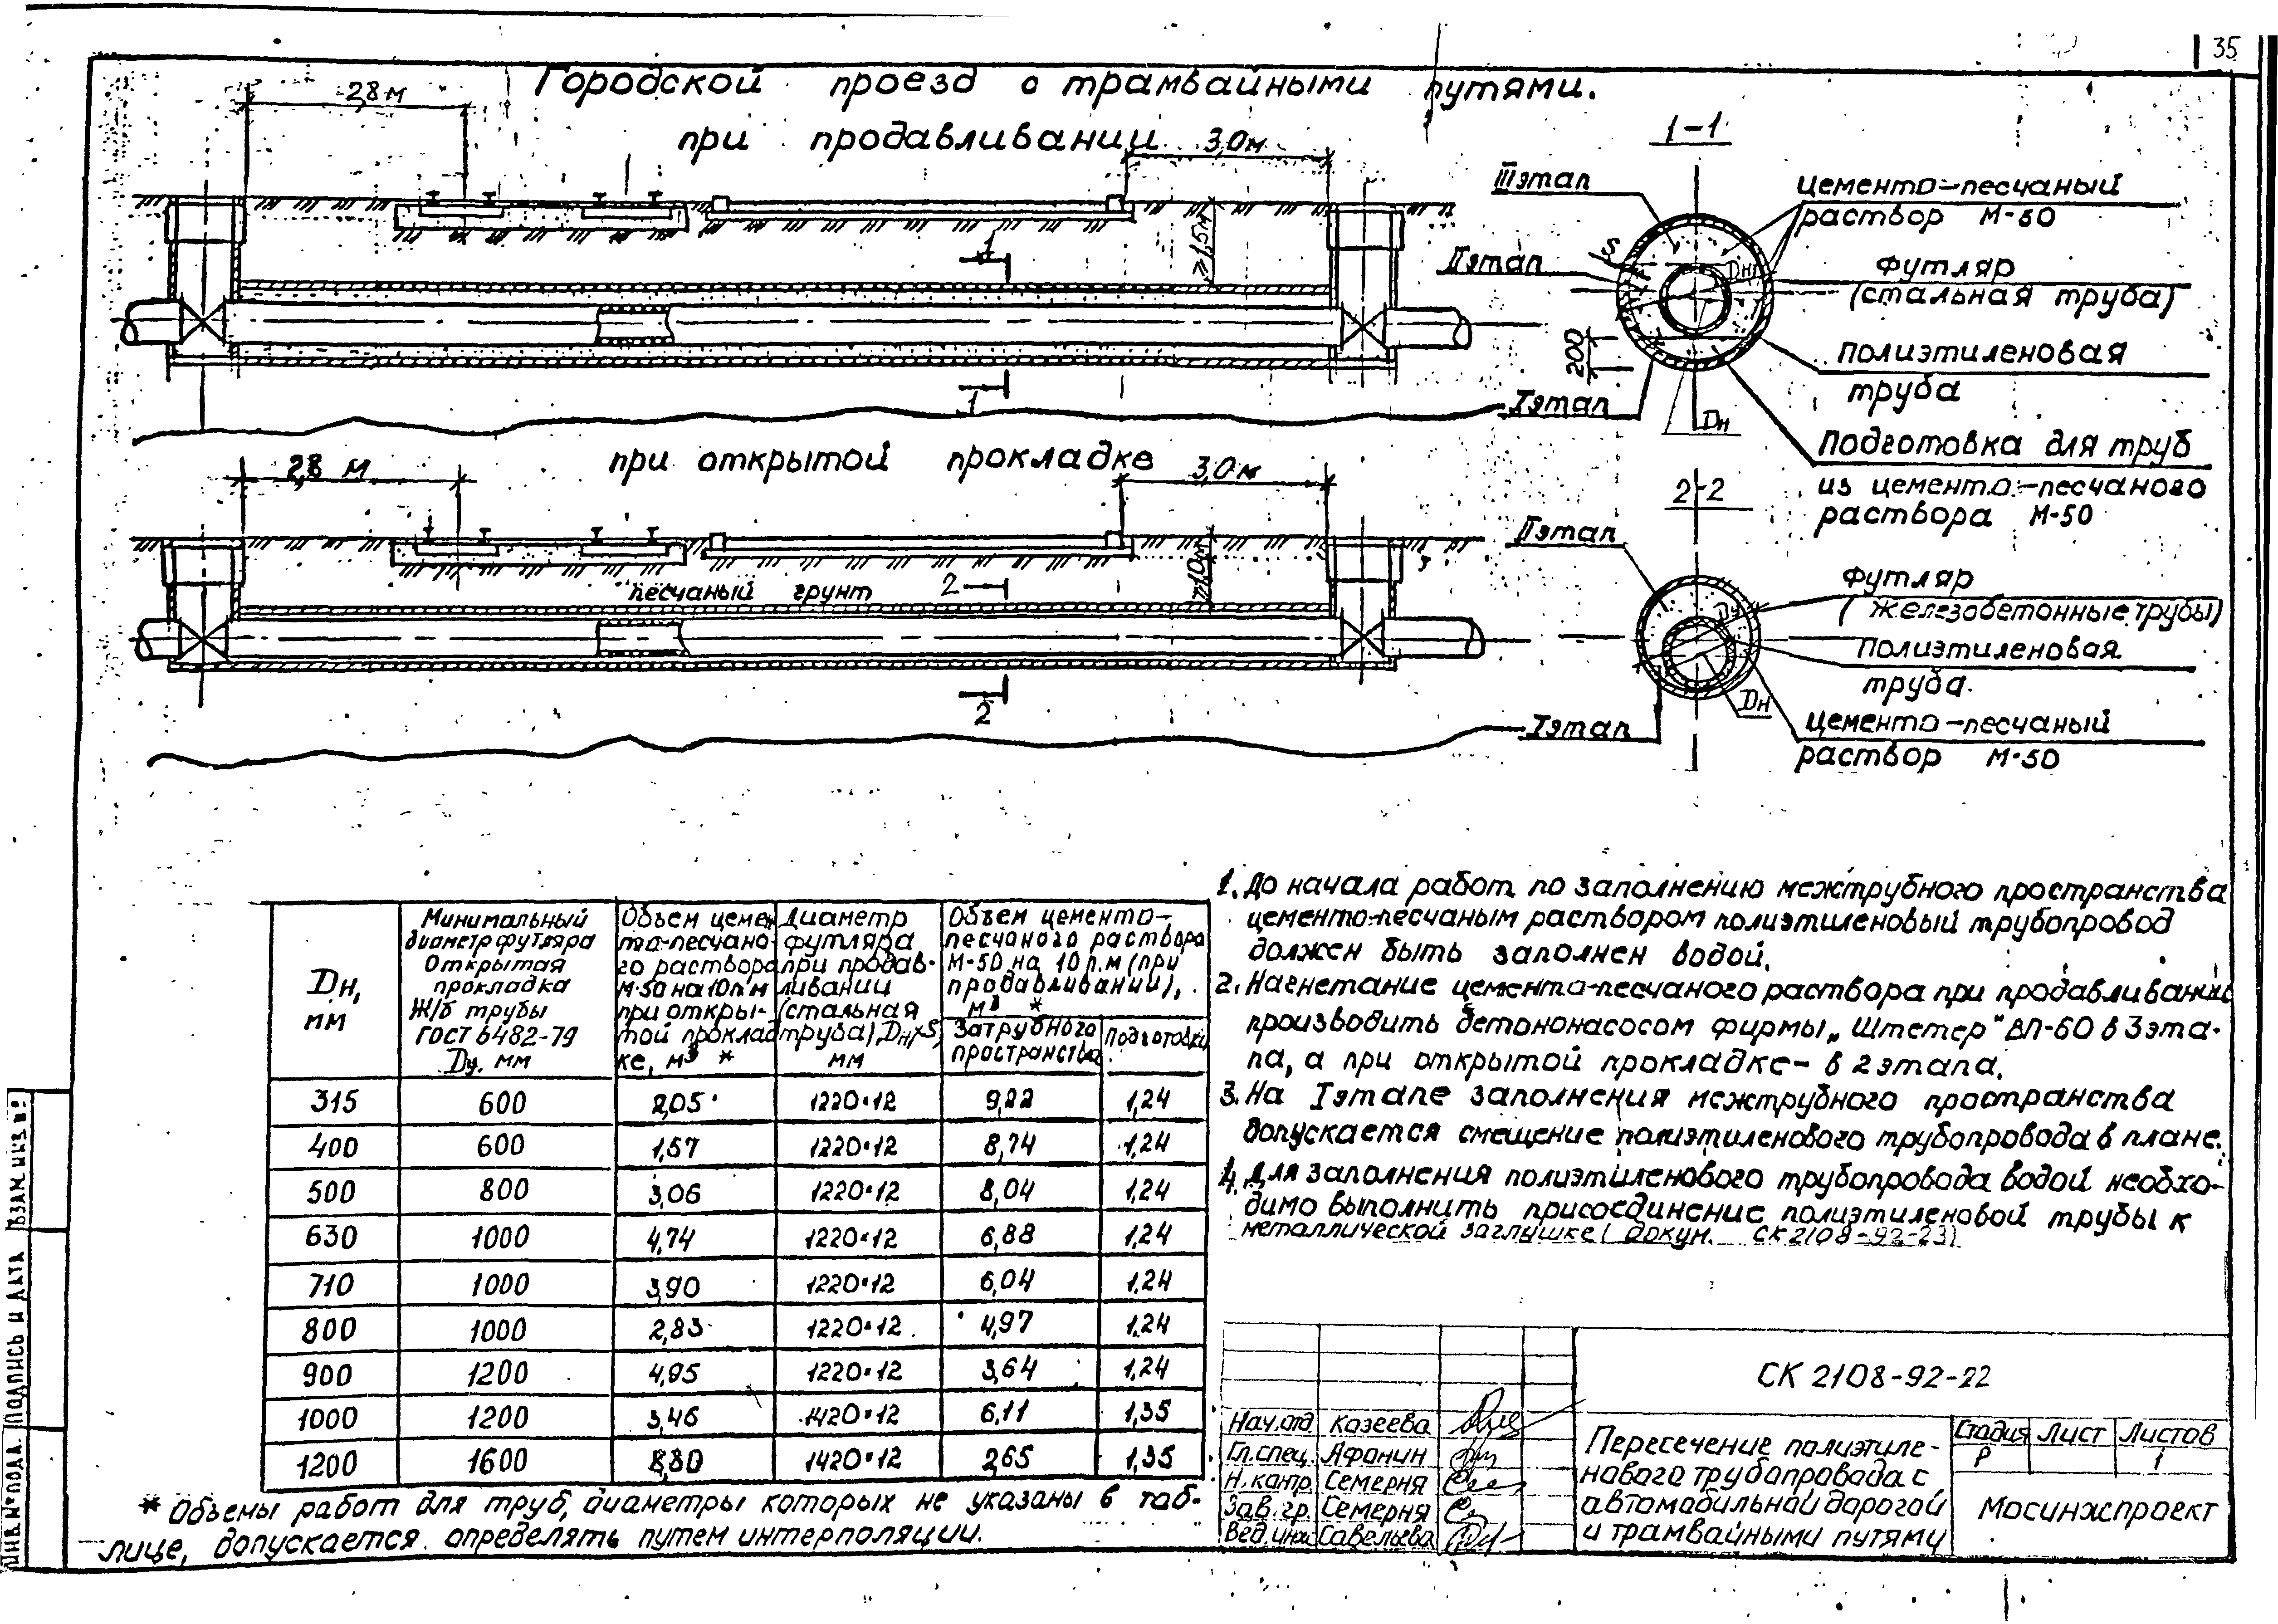 35
Городской проезд с трамвайными путями.
при продавливании
2,8 м
3,0 м
≥1,5м
1
1
1-1
III этап
II этап
I этап
S
Dн
200
Dн
цементо-песчаный
раствор М-50
Футляр
(стальная труба)
Полиэтиленовая
труба
Подготовка для труб
из цементо-песчаного
раствора М-50
при открытой прокладке
2,8 м
3,0 м
≥1,0м
песчаный грунт
2
2
2-2
II этап
I этап
Dу
Dн
Футляр
(железобетонные трубы)
Полиэтиленовая
труба.
цементо-песчаный
раствор М-50
Dн,
мм
Минимальный
диаметр футляра
Открытая
прокладка
Ж/б трубы
ГОСТ 6482-79
Dу, мм
Объем цемен
то-песчано-
го раствора
М-50 на 10п.м
при откры-
той проклад
ке, м³ *
Диаметр
футляра
при продав-
ливании
(стальная
труба), Dн×S,
мм
Объем цементо-
песчаного раствора
М-50 на 10 п.м (при
продавливании),
м³ *
Затрубного
пространства
Подготовки
315 600 2,05 1220×12 9,22 1,24
400 600 1,57 1220×12 8,74 1,24
500 800 3,06 1220×12 8,04 1,24
630 1000 4,74 1220×12 6,88 1,24
710 1000 3,90 1220×12 6,04 1,24
800 1000 2,83 1220×12 4,97 1,24
900 1200 4,95 1220×12 3,64 1,24
1000 1200 3,46 1420×12 6,11 1,35
1200 1600 8,80 1420×12 2,65 1,35
* Объемы работ для труб, диаметры которых не указаны в таб-
лице, допускается определять путем интерполяции.
1. До начала работ по заполнению межтрубного пространства
цементо-песчаным раствором полиэтиленовый трубопровод
должен быть заполнен водой.
2. Нагнетание цементо-песчаного раствора при продавливании
производить бетононасосом фирмы „Штетер" ВП-60 в 3 эта-
па, а при открытой прокладке - в 2 этапа.
3. На I этапе заполнения межтрубного пространства
допускается смещение полиэтиленового трубопровода в плане.
4. Для заполнения полиэтиленового трубопровода водой необхо-
димо выполнить присоединение полиэтиленовой трубы к
металлической заглушке (докум. СК 2108-92-23)
СК 2108-92-22
Нач.отд Козеева
Гл.спец. Афонин
Н.контр. Семерня
Зав.гр. Семерня
Вед.инж Савельева
Пересечение полиэтиле-
нового трубопровода с
автомобильной дорогой
и трамвайными путями
Стадия Лист Листов
Р 1
Мосинжпроект
ИНВ.№ ПОДЛ. ПОДПИСЬ И ДАТА ВЗАМ.ИНВ.№